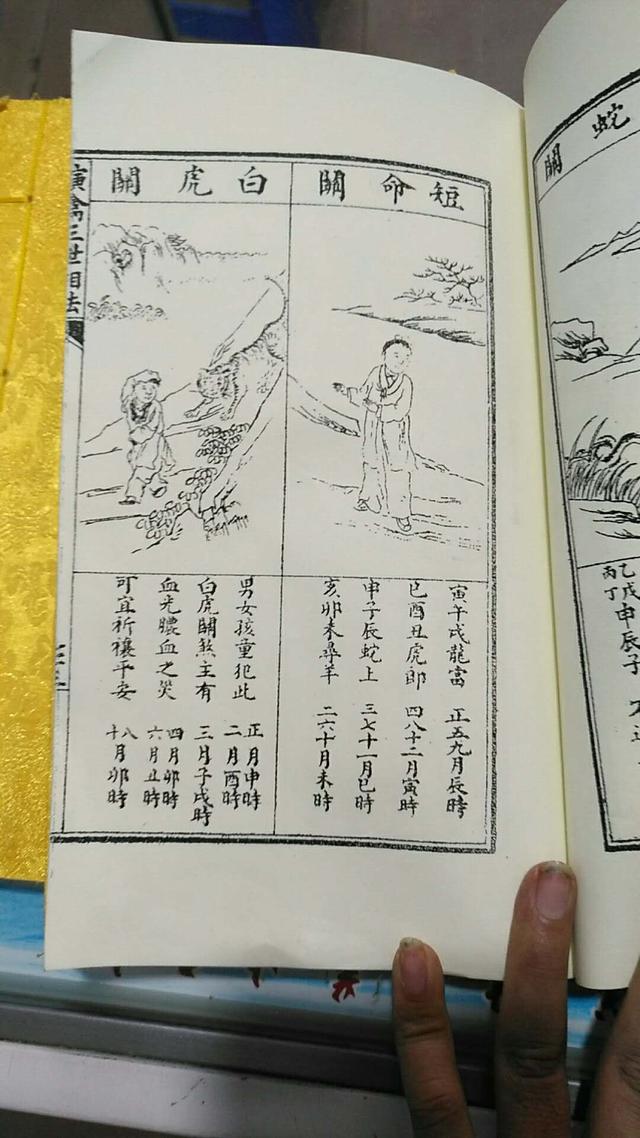 短命關
寅午戌龍當 正五九月辰時
巳酉丑虎郎 四八十二月寅時
申子辰蛇上 三七十一月巳時
亥卯未尋羊 二六十月未時
白虎關
男女孩童犯此
白虎關煞主有
血光膿血之災
可宜祈禳平安
正月申時
二月酉時
三月子戌時
四月卯時
六月丑時
八月卯時
十
演禽三世相法
蛇關
乙戊
丙丁
申辰子